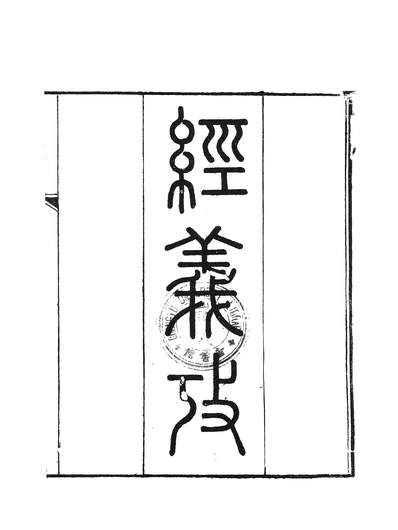 經義攷